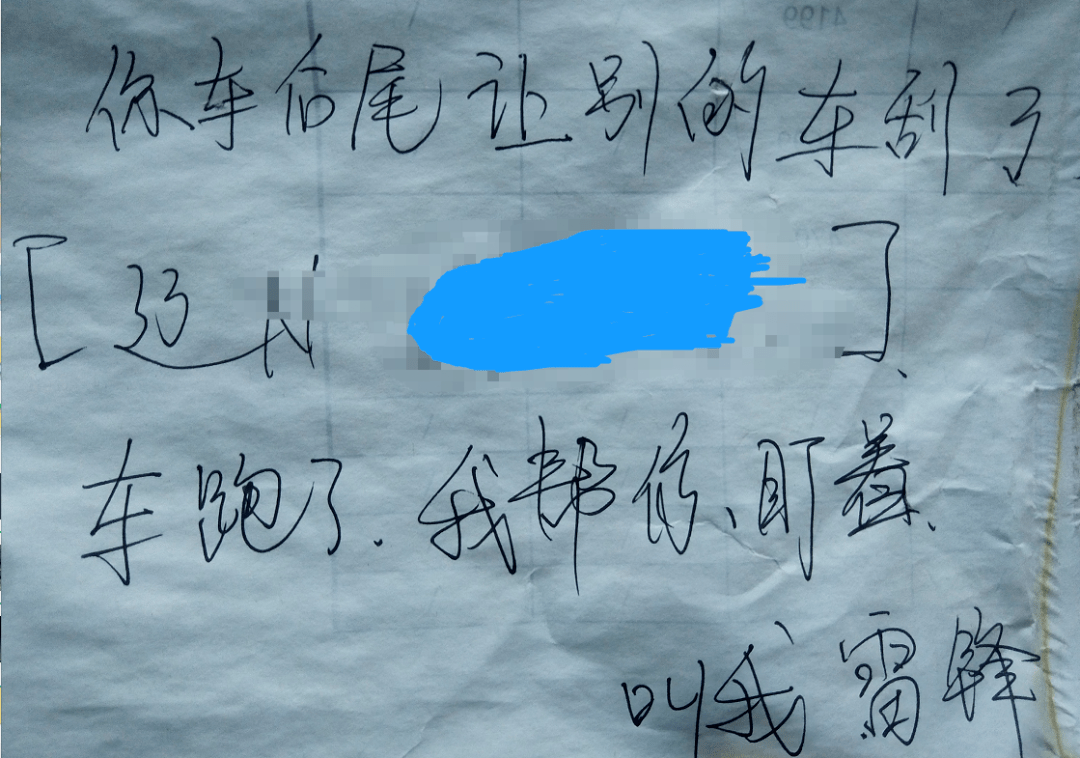 你车后尾让别的车刮了
[辽N ].
车跑了.我帮你盯着.
叫我雷锋